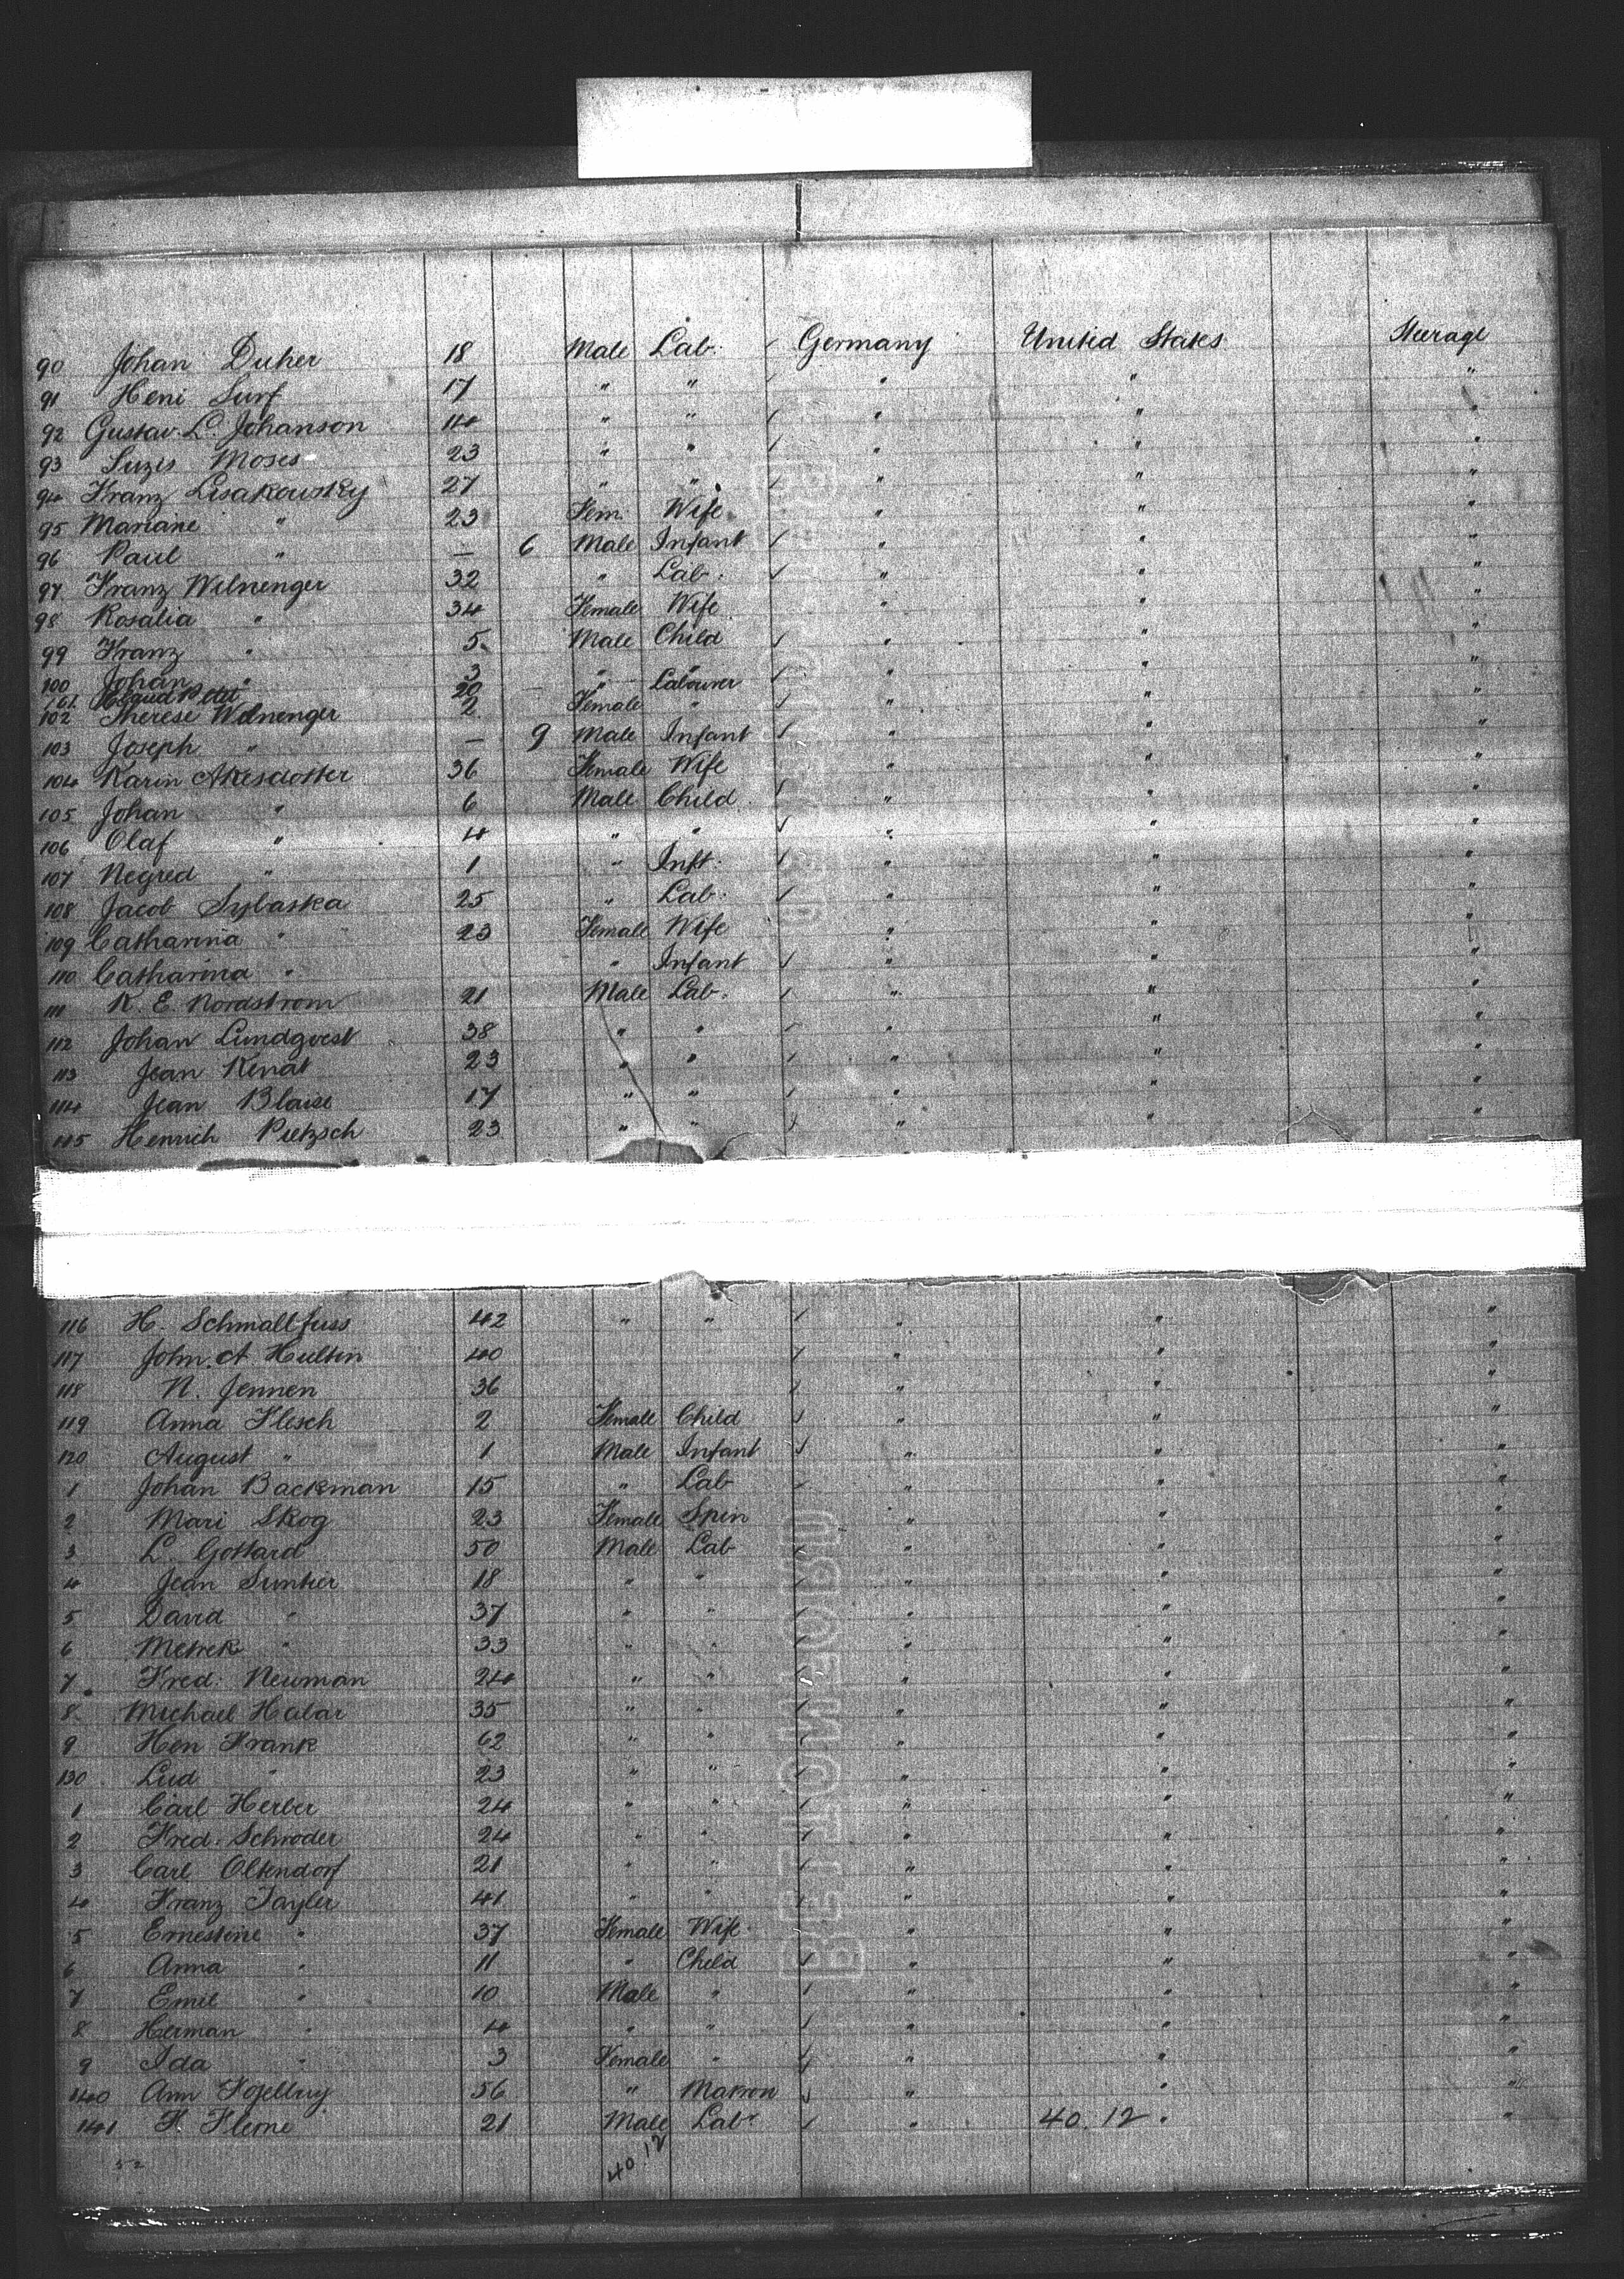 90 Johan Duher 18 Male Lab. Germany United States Steerage
91 Heni Surf 17 " " " " "
92 Gustav. L. Johanson 14 " " " " "
93 Suzis Moses 23 " " " " "
94 Franz Lisakowsky 27 " " " " "
95 Mariane " 23 Fem. Wife " " "
96 Paul " — 6 Male Infant " " "
97 Franz Wilnenger 32 " Lab. " " "
98 Rosalia " 34 Female Wife " " "
99 Franz " 5 Male Child " " "
100 Johan " 3 " " " " "
101 20 Labourer
102 Therese Wilnenger 2 Female " " " "
103 Joseph " — 9 Male Infant " " "
104 Karin Akesdotter 36 Female Wife " " "
105 Johan " 6 Male Child " " "
106 Olaf " 4 " " " " "
107 Negred " 1 " Inft. " " "
108 Jacob Sybaska 25 " Lab. " " "
109 Catharina " 23 Female Wife " " "
110 Catharina " " Infant " " "
111 K. E. Nordstrom 21 Male Lab. " " "
112 Johan Lundqvest 38 " " " " "
113 Jean Kenat 23 " " " " "
114 Jean Blaise 17 " " " " "
115 Henrich Pietzsch 23 " " " " "
116 H. Schmallfuss 42 " " " " "
117 John. A. Hulten 40 " "
118 N. Jennen 36 " " "
119 Anna Flesch 2 Female Child " " "
120 August " 1 Male Infant " " "
1 Johan Backman 15 " Lab " " "
2 Mari Skog 23 Female Spin " "
3 L. Gottard 50 Male Lab " " "
4 Jean Suntier 18 " " " " "
5 David " 37 " " " " "
6 Metrek " 33 " " " " "
7 Fred. Neuman 24 " " " " "
8 Michael Halar 35 " " " " "
9 Hen Frank 62 " " " " "
130 Lud " 23 " " " " "
1 Carl Herber 24 " " " " "
2 Fred. Schroder 24 " " " " "
3 Carl Oltendorf 21 " " " " "
4 Franz Tayler 41 " " " " "
5 Ernestine " 37 Female Wife " " "
6 Anna " 11 " Child " " "
7 Emil " 10 Male " " " "
8 Herman " 4 " " " " "
9 Ida " 3 Female " " " "
140 Ann 56 " Matron " " "
141 F. Fleine 21 Male Labr " 40.12 " "
52 40.12